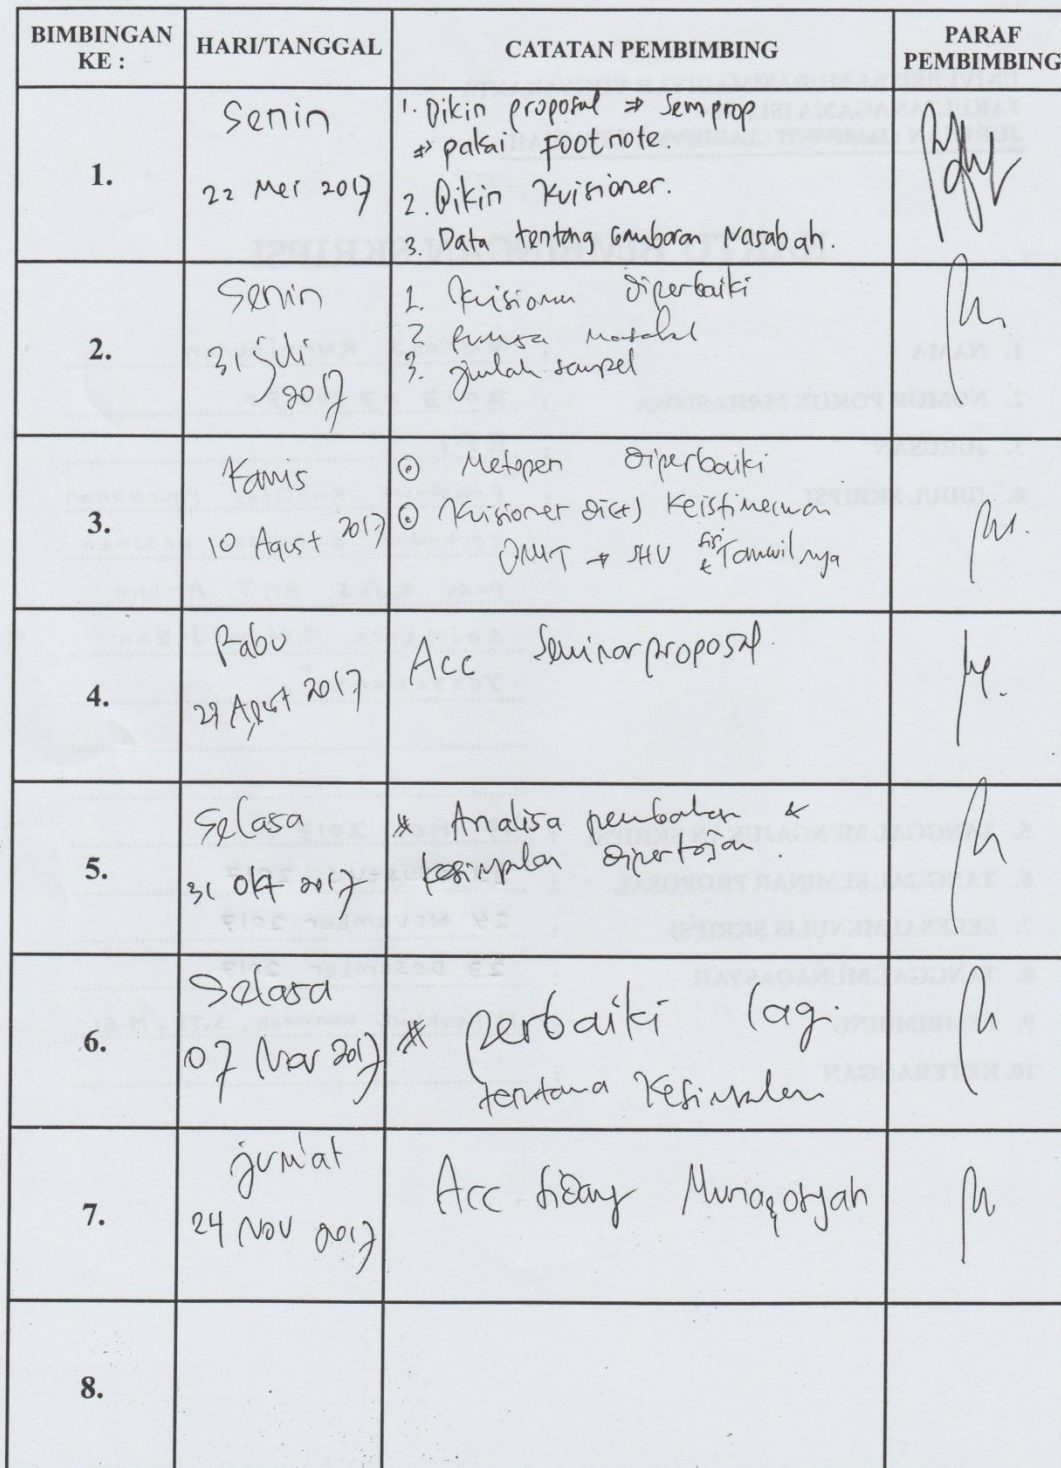 BIMBINGAN KE :
HARI/TANGGAL
CATATAN PEMBIMBING
PARAF PEMBIMBING
1.
Senin
22 Mei 2017
1. Bikin proposal ⇒ Semprop
⇒ pakai Footnote.
2. Bikin Kuisioner.
3. Data tentang Gambaran Nasabah.
2.
Senin
31 juli
2017
1. Kuisioner diperbaiki
2. masalah
3. jumlah sampel
3.
Kamis
10 Agust 2017
⊙ Metopen diperbaiki
⊙ Kuisioner Keistimewaan
BMT → SHU & Tamwilnya
4.
Rabu
Agust 2017
Acc Seminar proposal
5.
Selasa
31 Okt 2017
* Analisa pembahasan &
kesimpulan dipertajam.
6.
Selasa
07 Nov 2017
* perbaiki lagi
terutama Kesimpulan
7.
jum'at
24 Nov 2017
Acc sidang Munaqosyah
8.